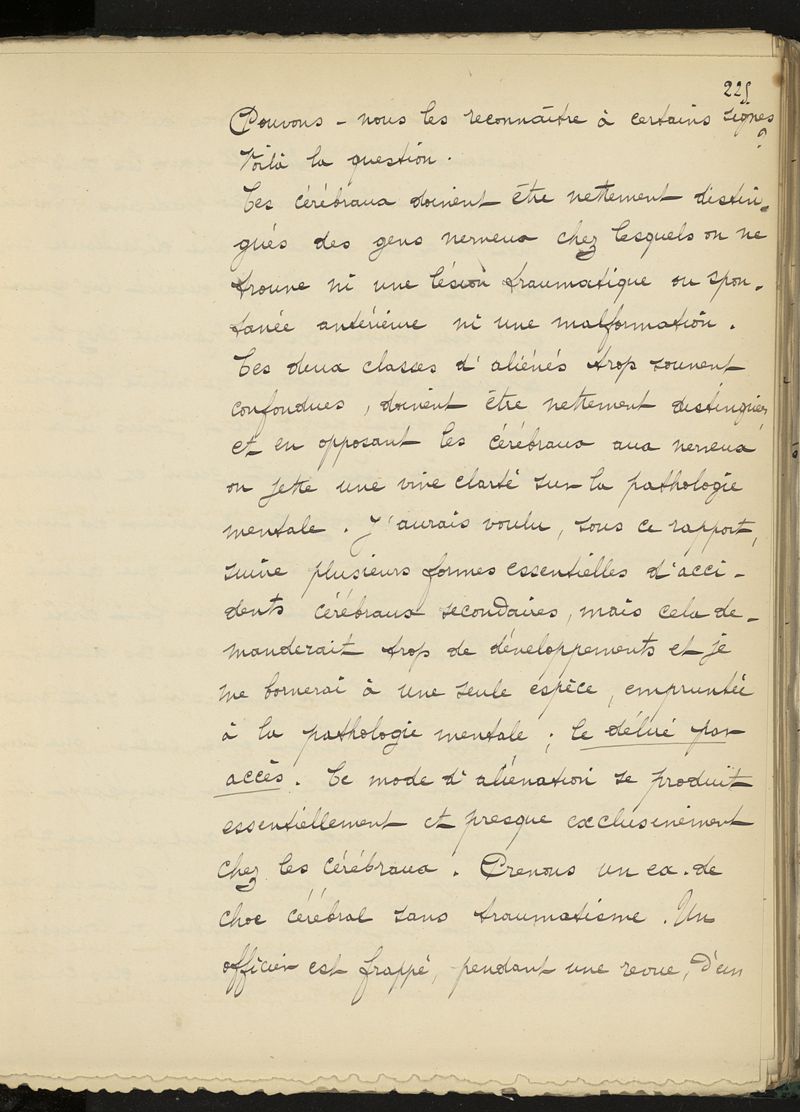 225
Pouvons-nous les reconnaître à certains signes ?
Voilà la question.
Ces cérébraux doivent être nettement distin-
gués des gens nerveux chez lesquels on ne
trouve ni une lésion traumatique ou spon-
tanée antérieure ni une malformation.
Ces deux classes d'aliénés trop souvent
confondues, doivent être nettement distinguées,
et en opposant les cérébraux aux nerveux
on jette une vive clarté sur la pathologie
mentale. J'aurais voulu, sous ce rapport,
suivre plusieurs formes essentielles d'acci-
dents cérébraux secondaires, mais cela de-
manderait trop de développements et je
me bornerai à une seule espèce, empruntée
à la pathologie mentale ; le délire par
accès. Ce mode d'aliénation se produit
essentiellement et presque exclusivement
chez les cérébraux. Prenons un ex. de
choc cérébral sans traumatisme. Un
officier est frappé, pendant une revue, d'un